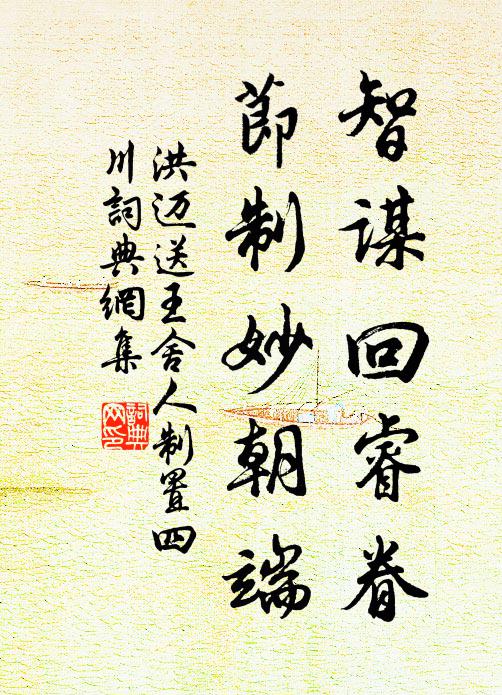 智謀回睿眷
莭制妙朝端
洪迈送王舍人制置四
川詞典網集
詞典网印